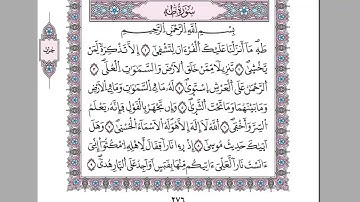 سورة طه
بسم الله الرحمن الرحيم
طه ما أنزلنا عليك القرءان لتشقى إلا تذكرة لمن
يخشى تنزيلا ممن خلق الأرض والسموات العلى
الرحمن على العرش استوى له ما في السموات وما في الأرض
وما بينهما وما تحت الثرى وإن تجهر بالقول فإنه يعلم
السر وأخفى الله لا إله إلا هو له الأسماء الحسنى وهل
أتىك حديث موسى إذ رءا نارا فقال لأهله امكثوا إني
ءانست نارا لعلي ءاتيكم منها بقبس أو أجد على النار هدى
٢٧٦